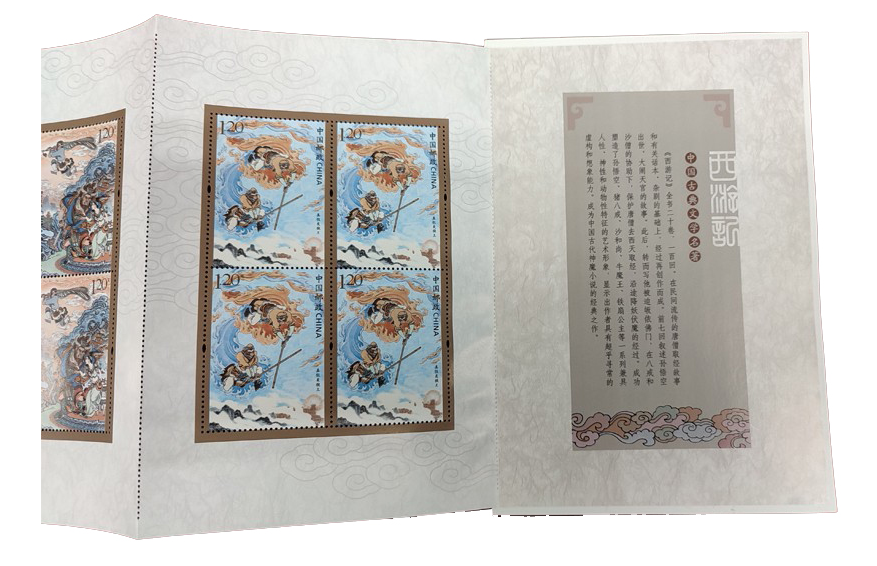 1.20
1.20
1.20
中国邮政 CHINA
1.20
中国邮政 CHINA
1.20
中国邮政 CHINA
1.20
中国邮政 CHINA
西游记
中国古典文学名著
《西游记》全书二十卷，一百回，在民间流传的唐僧取经故事
和有关话本、杂剧的基础上，经过再创作而成。前七回叙述孙悟空
出世、大闹天宫的故事。此后，转而写他被迫皈依佛门，在八戒和
沙僧的协助下，保护唐僧去西天取经，沿途降妖伏魔的经过。成功
塑造了孙悟空、猪八戒、沙和尚、牛魔王、铁扇公主等一系列兼具
人性、神性和动物性特征的艺术形象，显示出作者具有超乎寻常的
虚构和想象能力，成为中国古代神魔小说的经典之作。